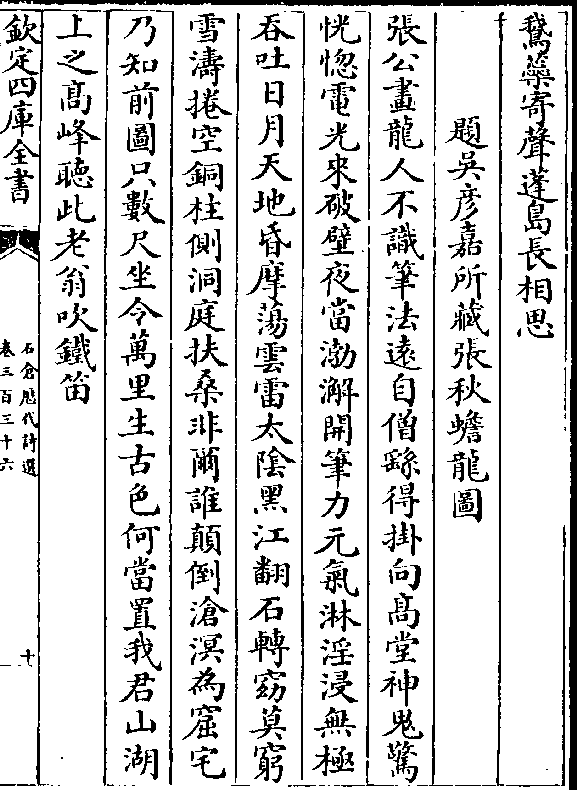 鵞蘂寄聲蓬島長相思
題吳彦嘉所藏張秋蟾龍圖
張公畫龍人不識筆法遠自僧繇得掛向髙堂神鬼驚
恍惚電光來破壁夜當渤澥開筆力元氣淋淫浸無極
吞吐日月天地昏摩蕩雲雷太陰黑江翻石轉窈莫窮
雪濤捲空銅柱側洞庭扶桑非爾誰顛倒滄溟為窟宅
乃知前圖只數尺坐令萬里生古色何當置我君山湖
上之髙峰聽此老翁吹鐵笛
欽定四庫全書
石倉歴代詩選
卷三百三十六
十